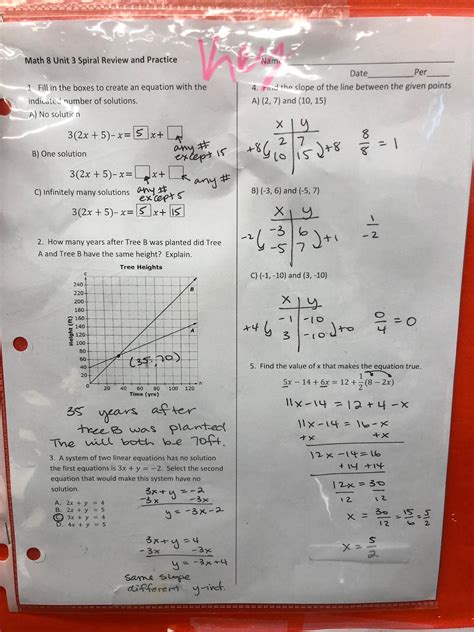 Key
Math 8 Unit 3 Spiral Review and Practice
Name
Date________Per____
1. Fill in the boxes to create an equation with the
indicated number of solutions.
A) No solution
3(2x + 5)- x= 5 x+
any #
except 15
B) One solution
3(2x + 5)- x= x+
any #
any #
except 5
C) Infinitely many solutions
3(2x + 5)- x= 5 x+ 15
2. How many years after Tree B was planted did Tree
A and Tree B have the same height? Explain.
Tree Heights
Height (ft)
240
220
200
180
160
140
120
100
80
60
40
20
0
B
A
(35,70)
20 40 60 80 100 120
Time (yrs)
35 years after
tree B was planted
The will both be 70ft.
3. A system of two linear equations has no solution
the first equations is 3x + y = −2. Select the second
equation that would make this system have no
solution.
A. 2x + y = 4
B. 2x + y = 5
C. 3x + y = 4
D. 4x + y = 5
3x+y=-2
-3x -3x
y=-3x-2
3x+y=4
-3x -3x
y=-3x+4
same slope
different y-int.
4. Find the slope of the line between the given points
A) (2, 7) and (10, 15)
x y
2 7
+8 10 15 +8
8
8 = 1
B) (-3, 6) and (-5, 7)
x y
-3 6
-2 -5 7 +1
1
-2
C) (-1, -10) and (3, -10)
x y
-1 -10
+4 3 -10 +0
0
4 = 0
5. Find the value of x that makes the equation true.
5x − 14 + 6x = 12 + 1/2 (8 − 2x)
11x-14 = 12+4-x
11x-14 = 16-x
+x +x
12x-14=16
+14 +14
12x = 30
12 12
x = 30/12 = 15/6 = 5/2
x = 5/2